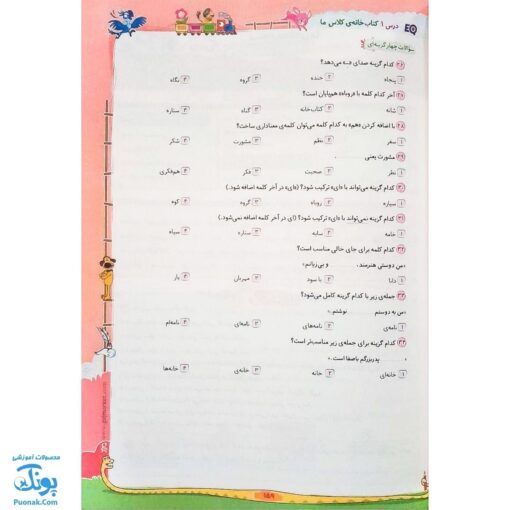 درس ۱ کتاب‌خانه‌ی کلاس ما
EQ
سؤالات چهارگزینه‌ای
۲۶ کدام گزینه صدای «ـه می‌دهد؟
۱ پنجاه ۲ خنده ۳ گروه ۴ نگاه
آخر کدام کلمه با «روباه» هم‌پایان است؟
۱ شانه ۲ کتاب‌خانه ۳ گیاه ۴ ستاره
۲۸ با اضافه کردن «هم» به کدام کلمه می‌توان کلمه‌ی معناداری ساخت؟
۱ سفر ۲ نظم ۳ مشورت ۴ شکر
۲۹ مشورت یعنی
۱ نظر ۲ صحبت ۳ فکر ۴ هم‌فکری
۳۰ کدام گزینه می‌تواند با «ای» ترکیب شود؟ («ای» در آخر کلمه اضافه شود.)
۱ سیاره ۲ روباه ۳ گروه ۴ کوه
۳۱ کدام گزینه نمی‌تواند با «ای» ترکیب شود؟ (ای در آخر کلمه اضافه نمی‌شود.)
۱ خامه ۲ سایه ۳ ستاره ۴ سیاه
۳۲ کدام کلمه برای جای خالی مناسب است؟
«من دوستی هنرمند، و بی‌زیانم.»
۱ دانا ۲ با سود ۳ مهربان ۴ یار
۳۳ جمله‌ی زیر با کدام گزینه کامل می‌شود؟
«من به دوستم نوشتم.»
۱ نامه‌ی ۲ نامه‌های ۳ نامه‌ای ۴ نامه‌ام
۳۴ کدام گزینه برای جمله‌ی زیر مناسب‌تر است؟
« پدربزرگم باصفا است.»
۱ خانه‌ای ۲ خانه ۳ خانه‌ی ۴ خانه‌ها
۱۵۹
محصولات آموزشی
پونک
Puonak.Com